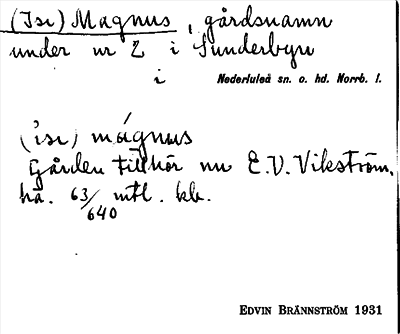 (Isr) Magnus, gårdsnamn
under nr 2 i Sunderbyn
i Nederluleå sn. o. hd. Norrb. l.
('isr) mágnus
Gården tillhör nu E.V. Vikström,
ha. 63/640 mtl. kb.
EDVIN BRÄNNSTRÖM 1931